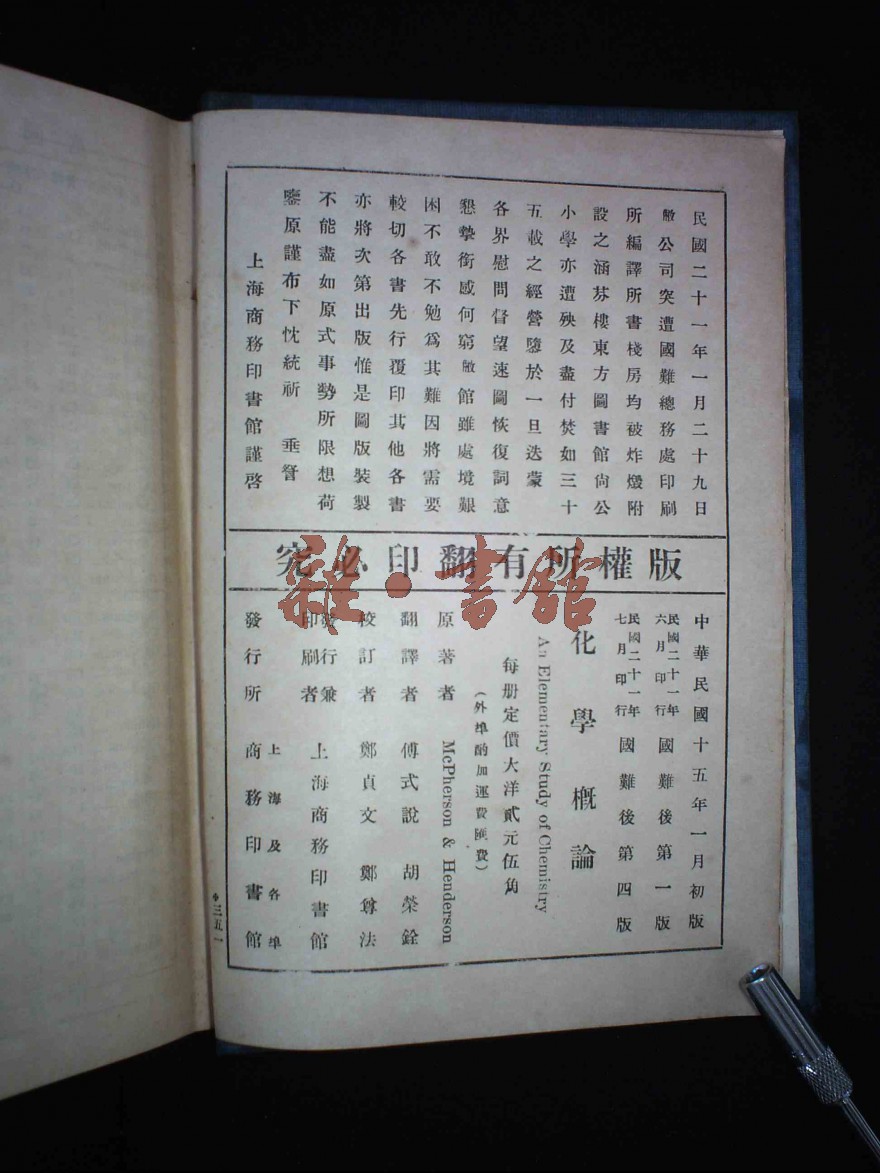 民國二十一年一月二十九日
敝公司突遭國難總務處印刷
所編譯所書棧房均被炸燬附
設之涵芬樓東方圖書館尙公
小學亦遭殃及盡付焚如三十
五載之經營隳於一旦迭蒙
各界慰問督望速圖恢復詞意
懇摯銜感何窮敝館雖處境艱
困不敢不勉爲其難因將需要
較切各書先行覆印其他各書
亦將次第出版惟是圖版裝製
不能盡如原式事勢所限想荷
鑒原謹布下忱統祈 垂詧
上海商務印書館謹啓
版權所有翻印必究
雜·書館
中華民國十五年一月初版
民國二十一年六月印行 國難後第一版
民國二十一年七月印行 國難後第四版
化學概論
An Elementary Study of Chemistry
每册定價大洋貳元伍角
(外埠酌加運費匯費)
原著者 McPherson & Henderson
翻譯者 傅式說 胡榮銓
校訂者 鄭貞文 鄭尊法
發行兼印刷者 上海商務印書館
發行所 上海及各埠 商務印書館
三五一